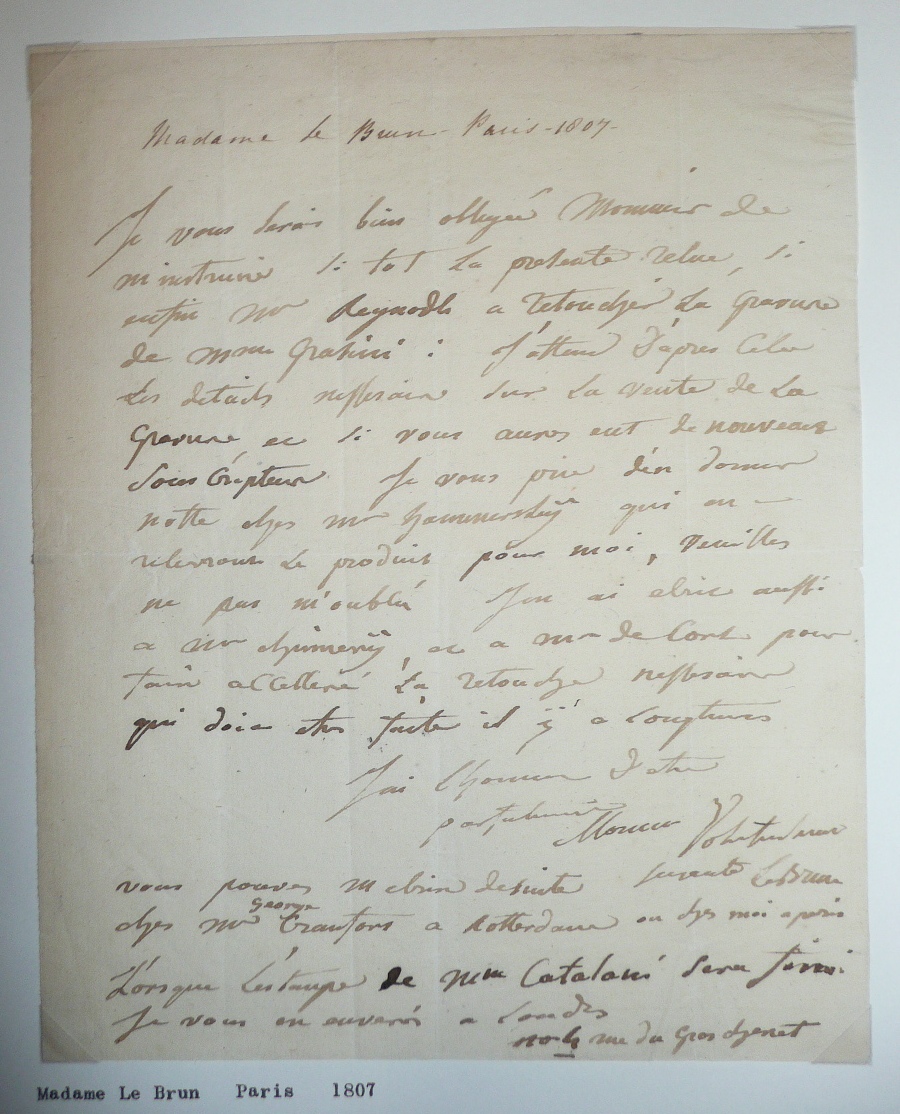 Madame Le Brun - Paris - 1807 -
Je vous serais bien obligée Monsieur de
m'instruire si tot la presente relue, si
enfin mr Reynodls a retouchér La Gravure
de mme Grasini : J'attend d'apres cela
Les details nessesaire sur La vente de La
Gravure, ec si vous aures eut de nouveaux
Souscripteur Je vous prie d'en donner
notte ches mr hammersley qui en -
releverons Le produit pour moi, veuilles
ne pas m'oublié J'en ai ecrie aussi
a mr chimerÿ, ec a mr de Cort pour
faire accelleré La retouche nessesaire
qui doit etre faite il ÿ a Longtems
J'ai L'honneur d'etre
parfaitement Monsieur Votre
servante LeBrun
vous pouves m'ecrire desuite
ches mr George Craufort a Rotterdame ou ches moi a paris
Lorsque L'estampe de mme Catalani sera finie
Je vous en enverés a Londres
no 4 rue du Gros chenet
Madame Le Brun Paris 1807